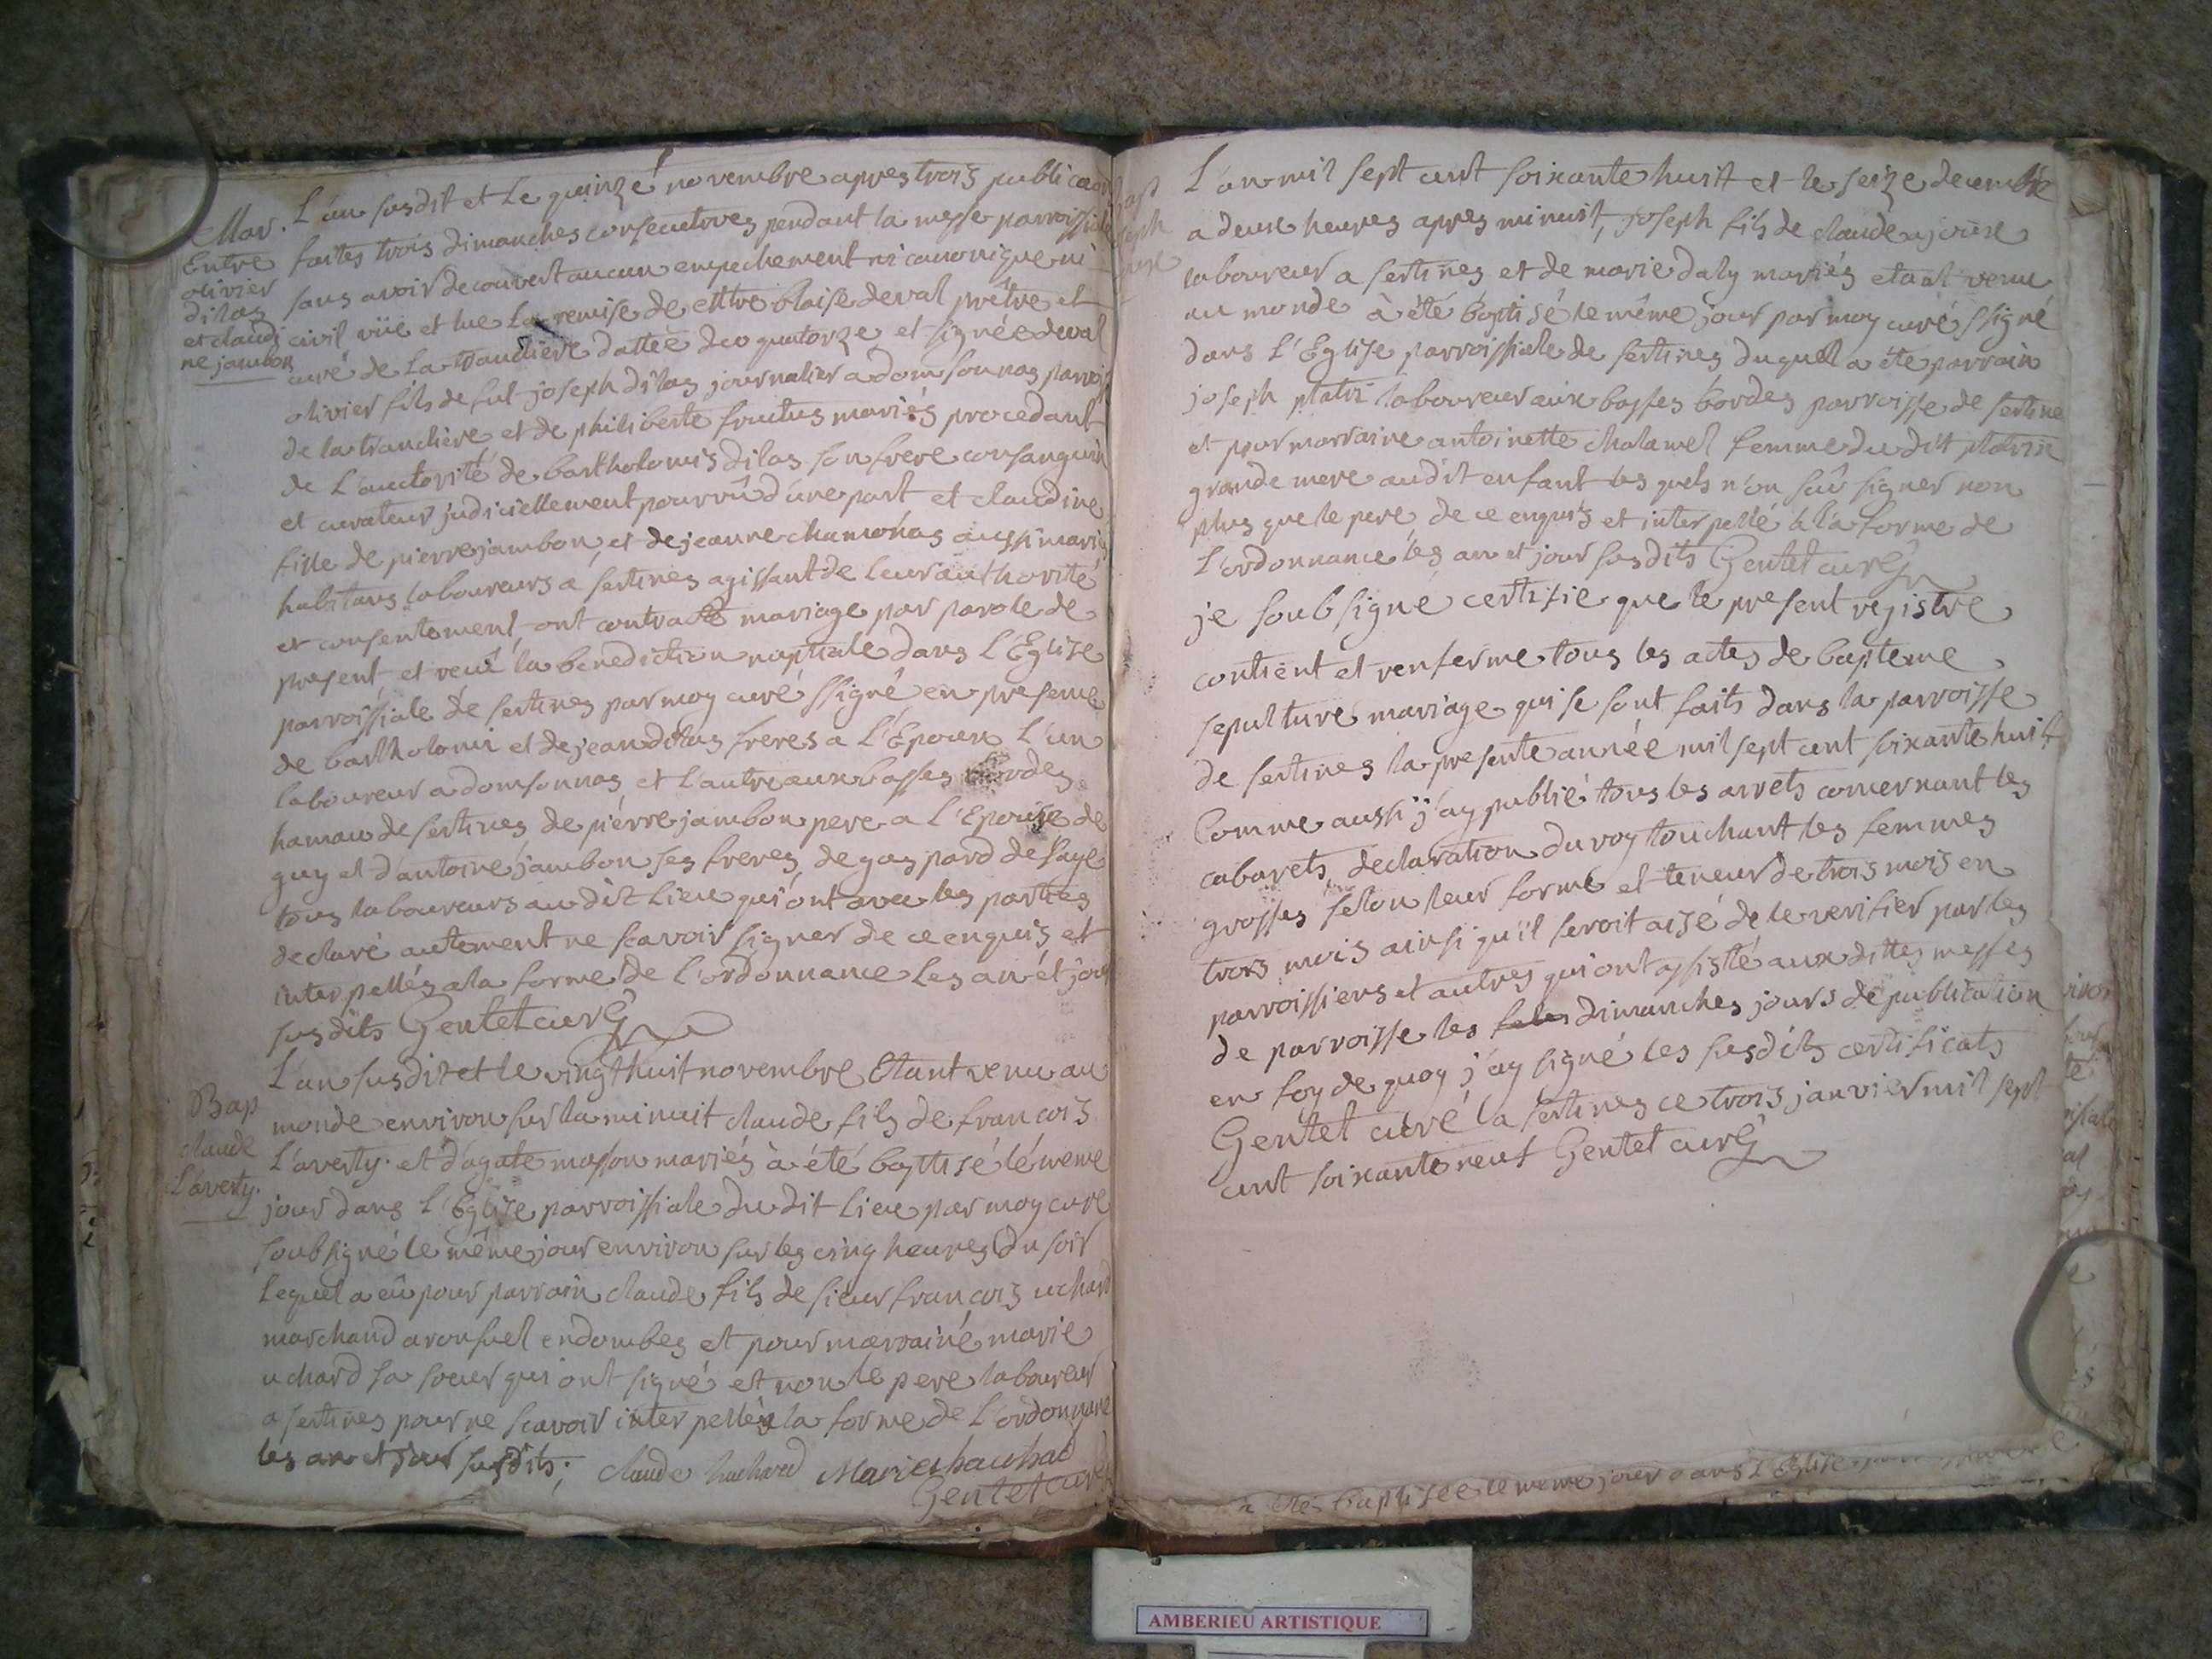 Mar.
Entre
olivier
dilas
et claudi
ne jambon
L'an susdit et le quinze novembre apres trois publica
faites trois dimanches consecutives pendant la messe parroissiale
sans avoir decouvert aucun empechement ni canonique ni
civil vüe et lue la remise de blaise deval prêtre et
curé de La tranclière dattée du quatorze et signée deval
olivier fils de fut joseph dilas journalier a domsonnas parrois
de la tranclière et de philiberte fructus mariés procedant
de L'auctorité de bartholomis dilas son frere consanguin
et curateur judiciellement pourvû d'une part et claudine
fille de pierre jambon et de jeanne chamonas aussi mariés
habitans laboureurs a sertines agissant de leur authorité
et consentement, ont contracté mariage par parole de
present et receu la benediction nuptiale dans L'Eglise
parroissiale de sertines par moy curé ssigné en presence
de bartholomi et de jean dilas freres a L'Epoux L'un
laboureur a domsonnas et L'autre aux basses bordes
hamau de sertines de pierre jambon pere a L'Epouse de
guy et d'antoine jambon ses freres, de gaspard de faye
tous laboureurs au dit Lieu qui ont avec les parties
declaré autement ne scavoir signer de ce enquis et
interpellés a la forme de L'ordonnance Les an et jour
susdits Gentet curé
Bap
claude
L'averty.
L'an susdit et le vingt huit novembre Etant venu au
monde environ sur la minuit claude fils de francois
L'averty. et d'agate masson mariés à été baptisé le meme
jour dans L'Eglise parroissiale du dit Lieu par moy curé
soubsigné le même jour environ sur les cinq heures du soir
Lequel a eû pour parrain claude fils de sieur francois uchard
marchand a ronsuel en dombes et pour marraine marie
uchard sa soeur qui ont signé et non le pere laboureur
a sertines pour ne scavoir interpellé a la forme de L'ordonnance
les an et jour susdits; claude huchard Marie
Gentet curé
L'an mil sept cent soixante huit et le seize decembre
a deux heures apres minuit, joseph fils de claude
laboureur a sertines et de marie daly mariés etant venu
au monde à été baptisé le même jour par moy curé ssigné
dans L'Eglise parroissiale de sertines duquel a été parrain
joseph platri laboureur aux basses bordes parroisse de sertine
et pour marraine antoinette chalamel femme du dit
grande mere audit enfant les quels n'on sçû signer non
plus que le pere de ce enquis et interpellé a la forme de
L'ordonnance les an et jour susdits Gentet curé
je soubsigné certifie que le present registre
contient et renferme tous les actes de bapteme
sepulture mariage qui se sont faits dans la parroisse
de sertines la presente année mil sept cent soixante huit
Comme aussi j'ay publié tous les arrets concernant les
cabarets, declaration du roy touchant les femmes
grosses selon leur forme et teneur de trois mois en
trois mois ainsi qu'il seroit aisé de le verifier par les
parroissiens et autres qui ont assisté aux dittes messes
de parroisse les dimanches jours de publication
en foy de quoy j'ay signé les susdits certificats
Gentet curé a sertines ce trois janvier mil sept
cent soixante neuf Gentet curé
a été baptisée le meme jour dans L'Eglise
AMBERIEU ARTISTIQUE